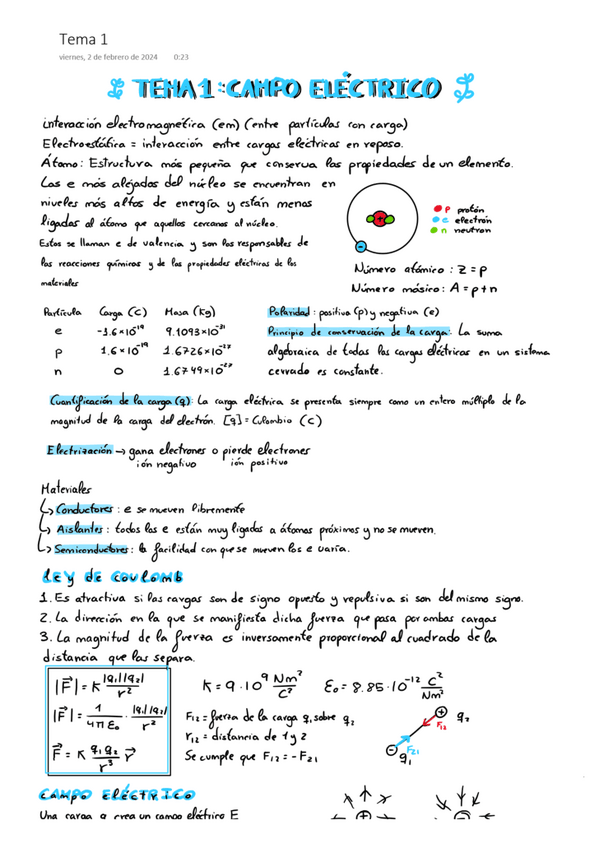 Tema 1
viernes, 2 de febrero de 2024 0:23
TEMA 1: CAMPO ELÉCTRICO
interacción electromagnética (em) (entre partículas con carga)
Electrostática = interacción entre cargas eléctricas en reposo.
Átomo: Estructura más pequeña que conserva las propiedades de un elemento.
Los e más alejados del núcleo se encuentran en
niveles más altos de energía y están menos
ligados al átomo que aquellos cercanos al núcleo.
Estos se llaman e de valencia y son los responsables de
las reacciones químicas y de las propiedades eléctricas de los
materiales
p protón
e electrón
n neutron
Número atómico: Z = p
Número másico: A = p + n
Partícula Carga (C) Masa (Kg)
e -1.6×10⁻¹⁹ 9.1093×10⁻³¹
p 1.6×10⁻¹⁹ 1.6726×10⁻²⁷
n 0 1.6749×10⁻²⁷
Polaridad: positiva (p) y negativa (e)
Principio de conservación de la carga: La suma
algebraica de todas las cargas eléctricas en un sistema
cerrado es constante.
Cuantificación de la carga (q): La carga eléctrica se presenta siempre como un entero múltiplo de la
magnitud de la carga del electrón. [q] = Culombio (C)
Electrización → gana electrones o pierde electrones
ión negativo ión positivo
Materiales
Conductores: e se mueven libremente
Aislantes: todos los e están muy ligados a átomos próximos y no se mueven.
Semiconductores: la facilidad con que se mueven los e varía.
Ley de Coulomb
1. Es atractiva si las cargas son de signo opuesto y repulsiva si son del mismo signo.
2. La dirección en la que se manifiesta dicha fuerza que pasa por ambas cargas
3. La magnitud de la fuerza es inversamente proporcional al cuadrado de la
distancia que las separa.
|F⃗| = K |q₁||q₂| / r²
|F⃗| = 1 / 4πε₀ · |q₁||q₂| / r²
F⃗ = K q₁q₂ / r³ r⃗
K = 9·10⁹ Nm²/C² ε₀ = 8.85·10⁻¹² C²/Nm²
F₁₂ = fuerza de la carga q₁ sobre q₂
r₁₂ = distancia de 1 y 2
Se cumple que F₁₂ = -F₂₁
+ q₂
F₁₂
F₂₁
- q₁
Campo eléctrico
Una carga q crea un campo eléctrico E